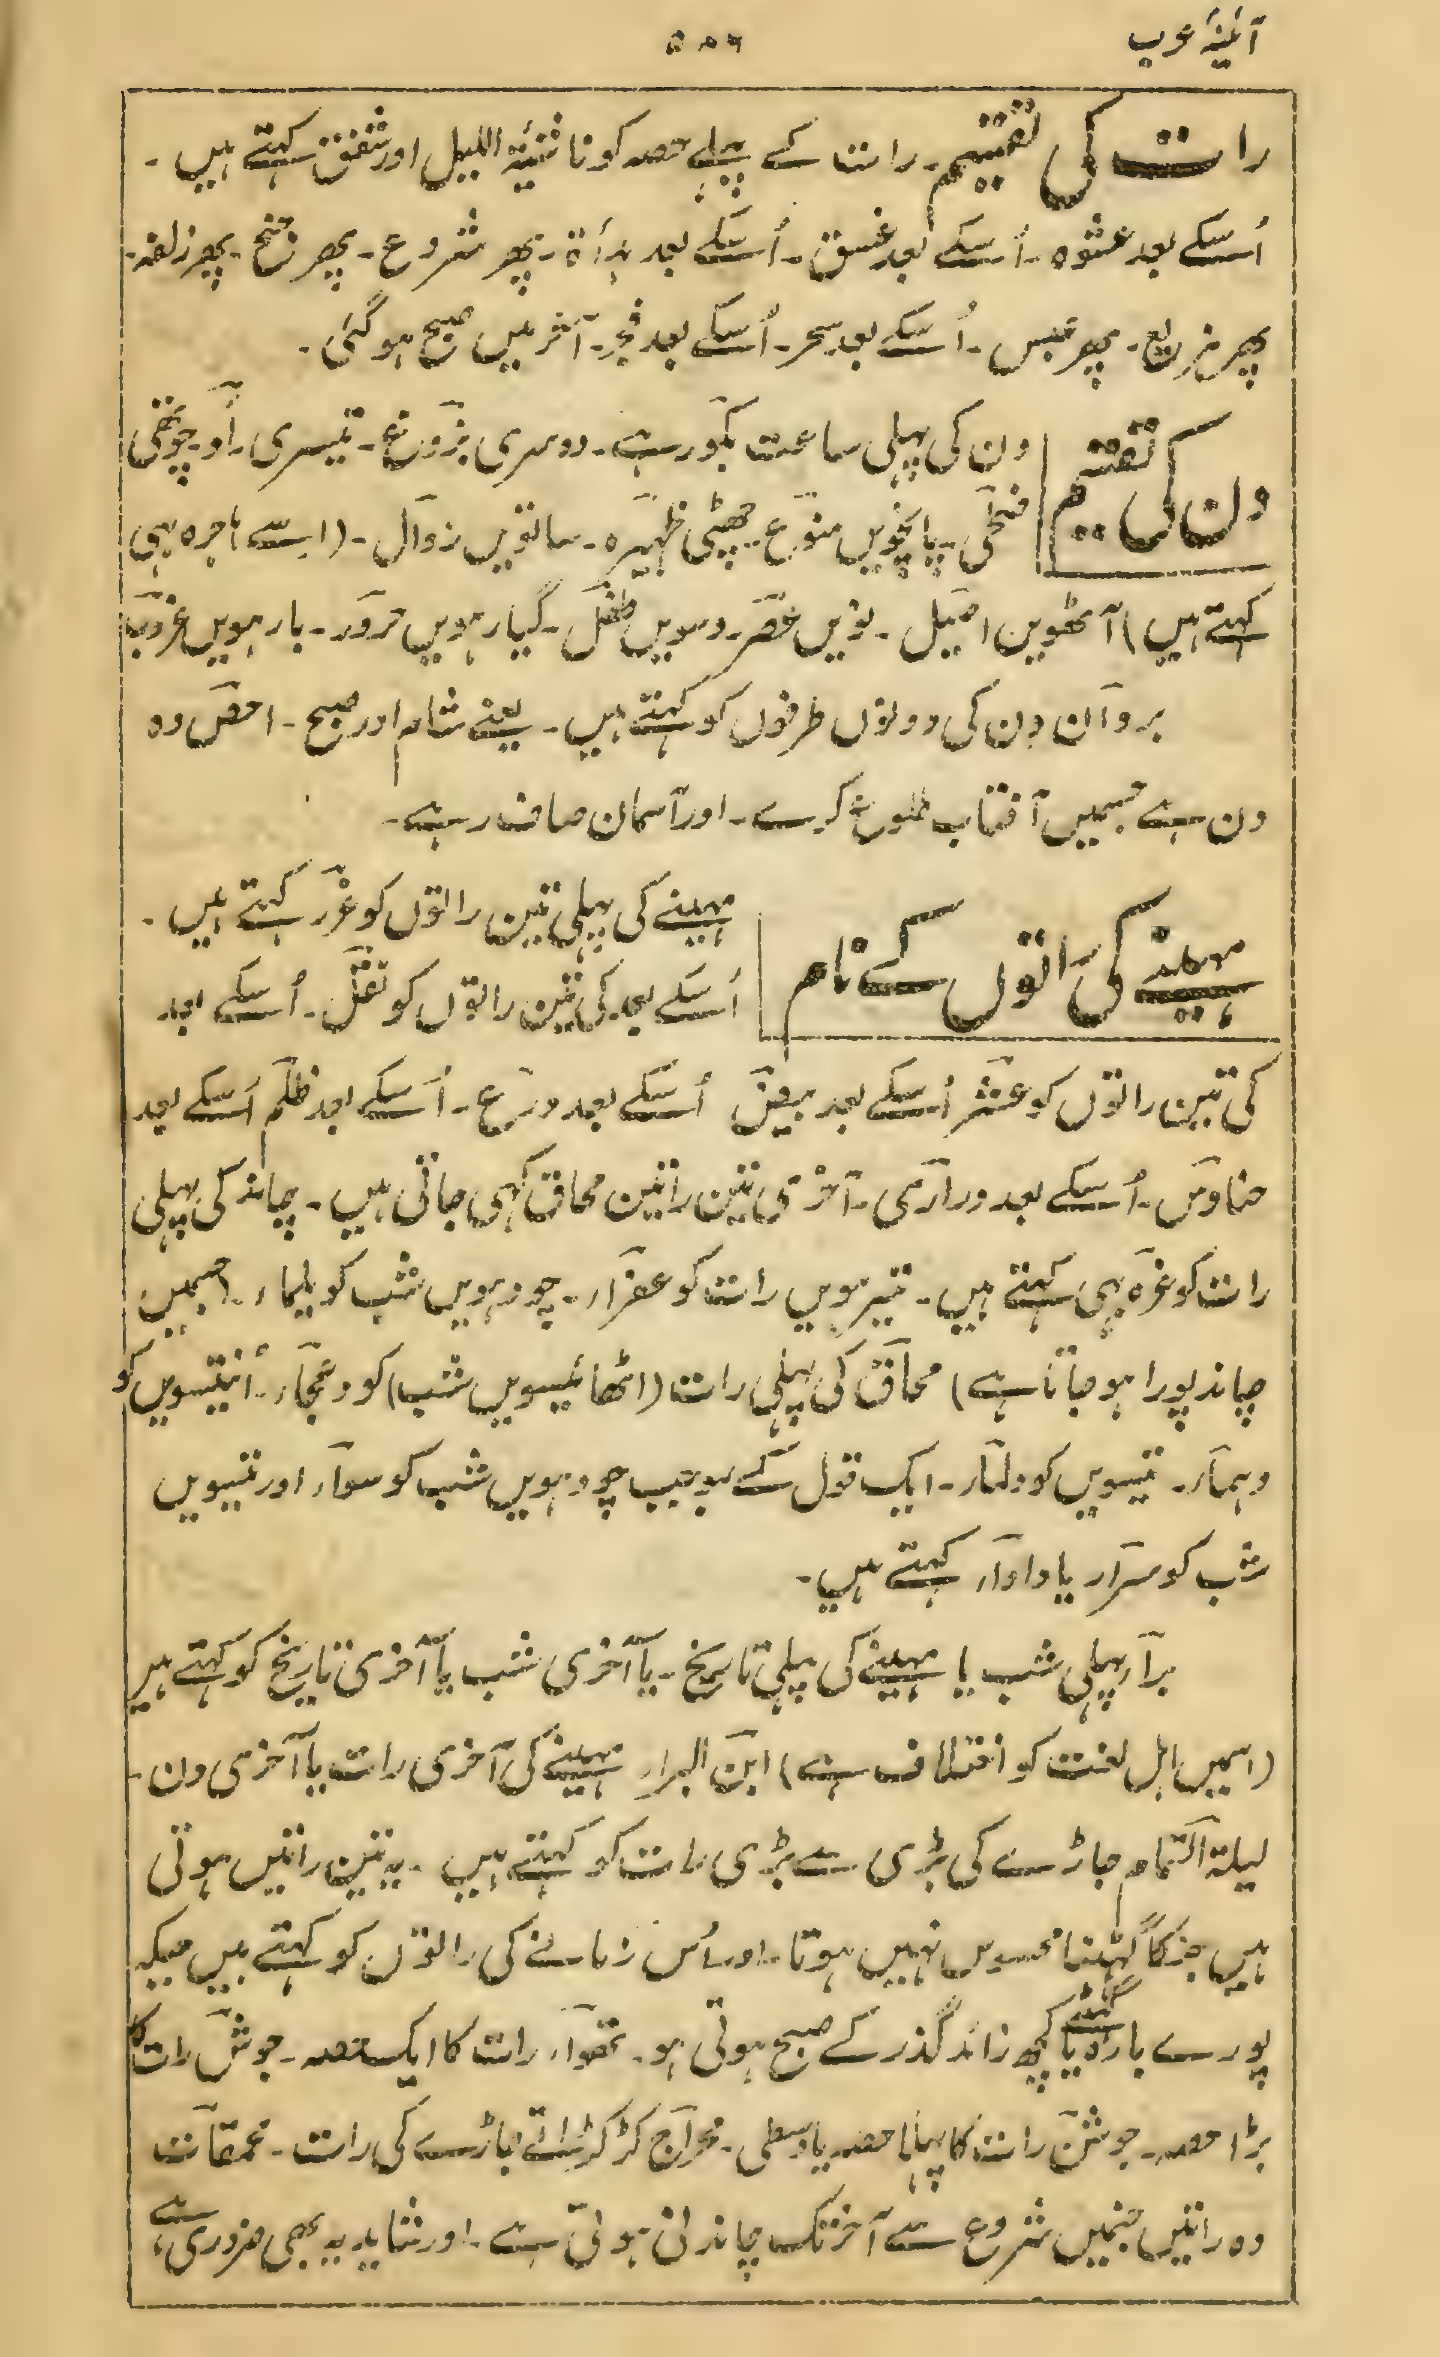 آئینۂ عرب
۵۰۶
رات کی تقسیم۔ رات کے پہلے حصہ کو ناشئۃ اللیل اور شفق کہتے ہیں۔
اُسکے بعد عشوہ۔ اُسکے بعد غسق۔ اُسکے بعد ہدأۃ۔ پھر شروع۔ پھر جنح۔ پھر زلفہ۔
پھر ہزیع۔ پھر غبس۔ اُسکے بعد سحر۔ اُسکے بعد فجر۔ آخر میں صبح ہو گئی۔
دن کی تقسیم
دن کی پہلی ساعت بکور ہے۔ دوسری بزوغ۔ تیسری رأد۔ چوتھی
ضحیٰ۔ پانچویں متوع۔ چھٹی ظہیرہ۔ ساتویں زوال۔ (اسے ہاجرہ بہی
کہتے ہیں) آٹھوین اصیل۔ نویں عصر۔ دسویں طفل۔ گیارہویں حرور۔ بارہویں غروب
بردان دن کی دونوں طرفوں کو کہتے ہیں۔ یعنے شام اور صبح۔ احص وہ
دن ہے جسمیں آفتاب طلوع کرے۔ اور آسمان صاف رہے۔
مہینے کی راتوں کے نام
مہینے کی پہلی تین راتوں کو غرر کہتے ہیں۔
اُسکے بعد کی تین راتوں کو نفل۔ اُسکے بعد
کی تین راتوں کو عشر اُسکے بعد بیض اُسکے بعد درع۔ اُسکے بعد ظلم اُسکے بعد
حنادس۔ اُسکے بعد دراری۔ آخری تین راتین محاق کہی جاتی ہیں۔ چاند کی پہلی
رات کو غرہ بہی کہتے ہیں۔ تیرہویں رات کو عفراء۔ چودہویں شب کو بلماء۔ (جسمیں
چاند پورا ہو جاتا ہے) محاق کی پہلی رات (اٹھائیسویں شب) کو دعجاء۔ اُنتیسویں کو
دہماء۔ تیسویں کو دلماء۔ ایک قول کے بموجب چودہویں شب کو سواء اور تیسویں
شب کو سرار یا داداء کہتے ہیں۔
براء پہلی شب یا مہینے کی پہلی تاریخ۔ یا آخری شب یا آخری تاریخ کو کہتے ہیں
(اسمیں اہل لغت کو اختلاف ہے) ابن البراء مہینے کی آخری رات یا آخری دن۔
لیلۃ التمام جاڑے کی بڑی سے بڑی رات کو کہتے ہیں۔ یہ تین راتیں ہوتی
ہیں جنکا گہٹنا محسوس نہیں ہوتا۔ اور اُس زمانے کی راتوں کو کہتے ہیں جبکہ
پورے بارہ گھنٹے یا کچھ زائد گذر کے صبح ہوتی ہو۔ رات کا ایک حصہ۔ جوش رات کا
بڑا حصہ۔ جوشن رات کا پہلا حصہ یا وسطی۔ کڑکڑاتے جاڑے کی رات۔ محمقات
وہ راتیں جنمیں شروع سے آخرتک چاندنی ہوتی ہے۔ اور شاید یہ بھی ضروری ہے،